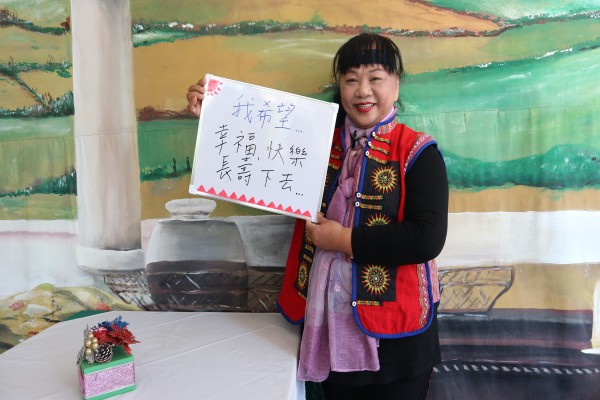 我希望...
幸福、快樂
長壽下去...